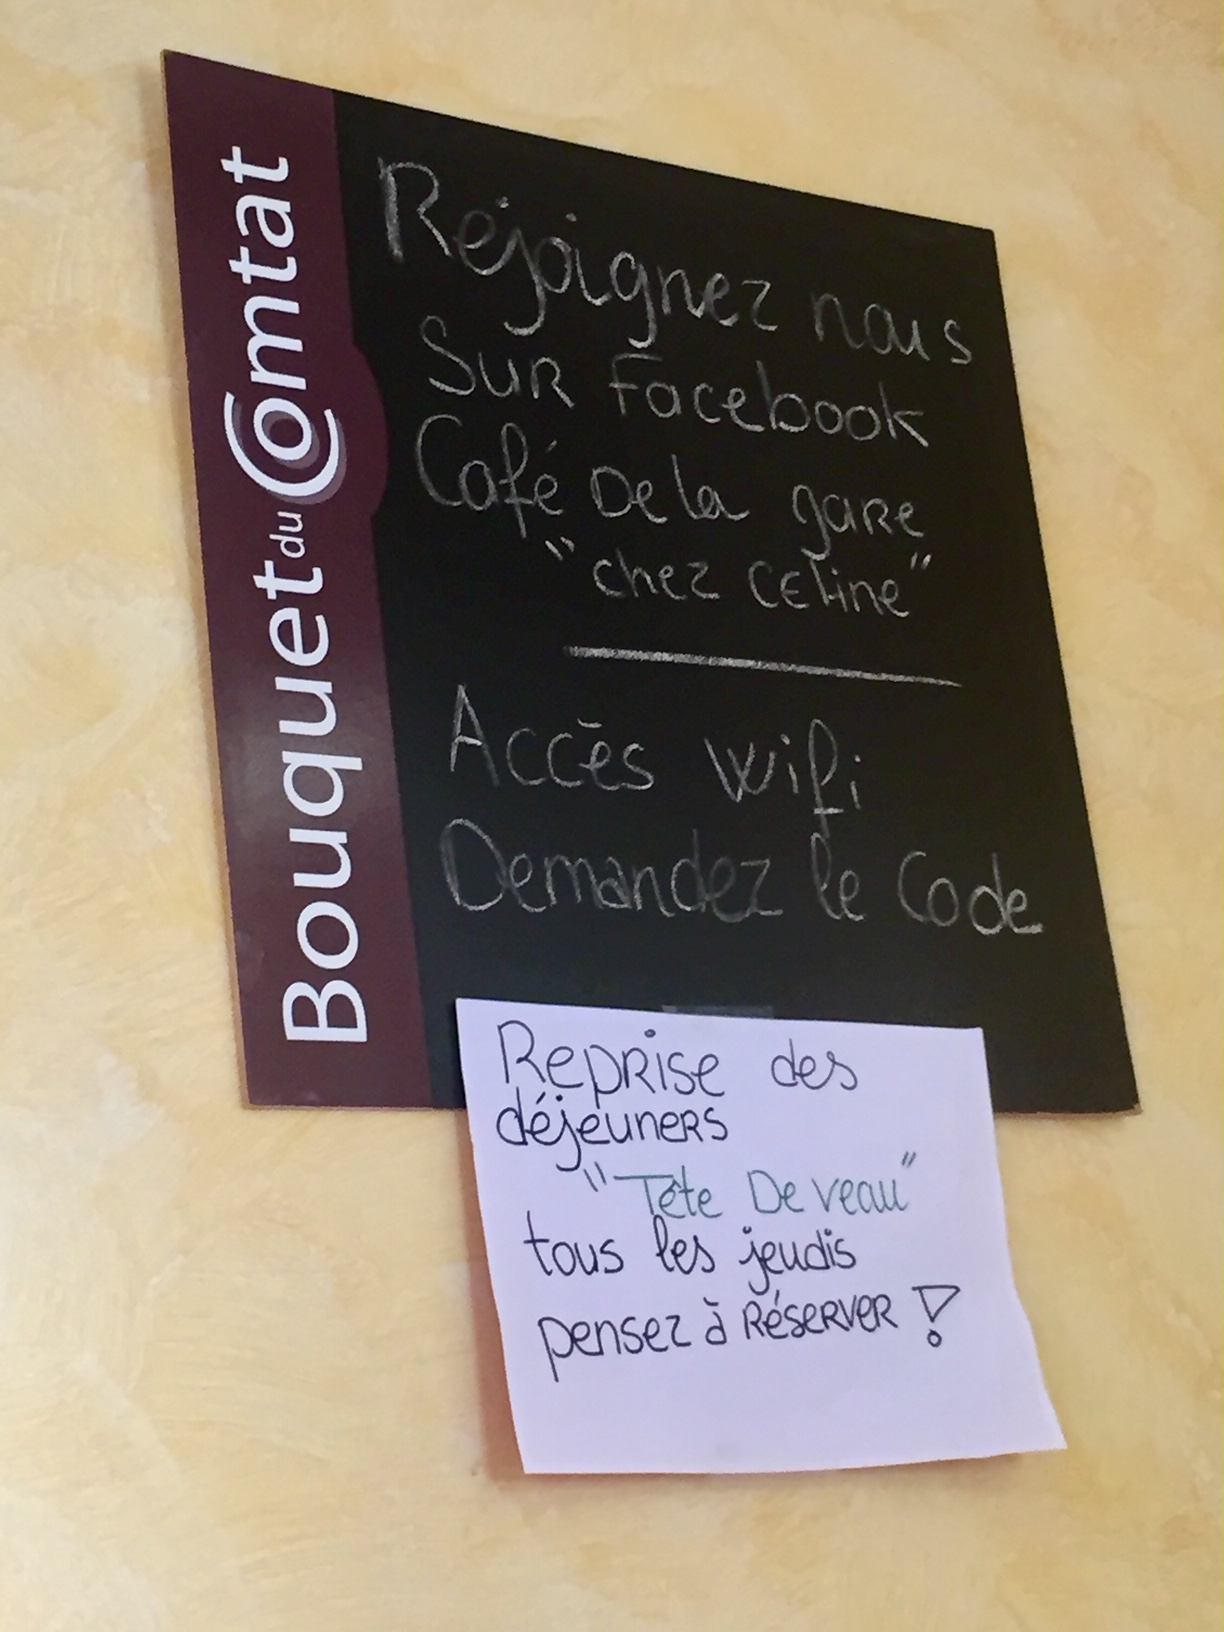 Bouquet du Comtat
Rejoignez nous
Sur Facebook
Café De la gare
"chez Celine"
Accès wifi
Demandez le Code
Reprise des
déjeuners
"Tête De veau"
tous les jeudis
pensez à Réserver !